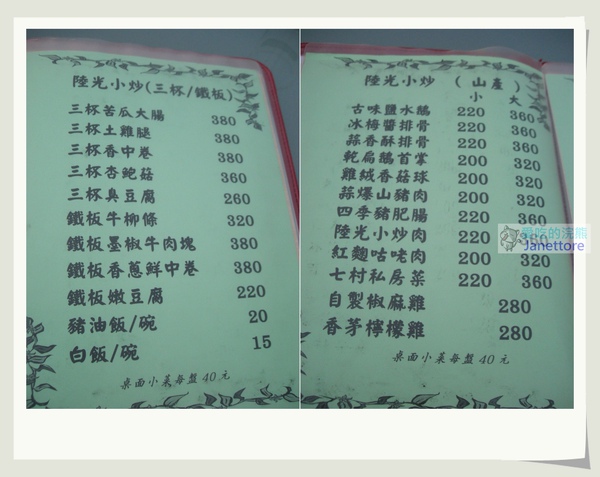 陸光小炒(三杯/鐵板)
三杯苦瓜大腸 380
三杯土雞腿 380
三杯香中卷 380
三杯杏鮑菇 360
三杯臭豆腐 260
鐵板牛柳條 320
鐵板墨椒牛肉塊 380
鐵板香蔥鮮中卷 380
鐵板嫩豆腐 220
豬油飯/碗 20
白飯/碗 15
桌面小菜每盤40元
陸光小炒 (山產)
小 大
古味鹽水鵝 220 360
冰梅醬排骨 220 360
蒜香酥排骨 200 320
乾扁鵝首掌 200 320
雞絨香菇球 200 320
蒜爆山豬肉 200 320
四季豬肥腸 220 360
陸光小炒肉 220 360
紅麴咕咾肉 200 320
七村私房菜 220 360
自製椒麻雞 280
香茅檸檬雞 280
桌面小菜每盤40元
愛吃的浣熊
Janettore